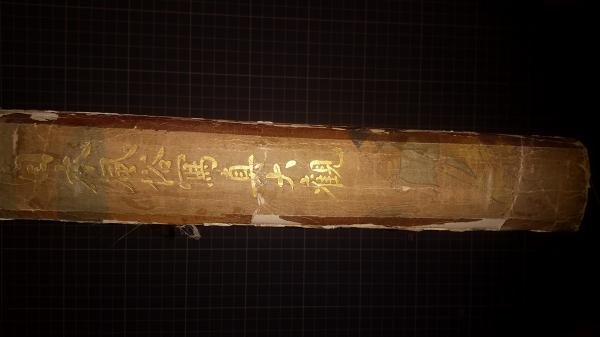 日本風俗寫真大觀